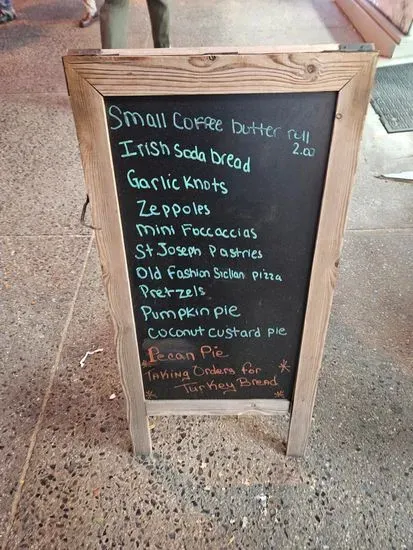 Small Coffee butter roll
2.00
Irish Soda bread
Garlic Knots
Zeppoles
mini Foccaccias
St Joseph Pastries
Old Fashion Sicilian pizza
Pretzels
Pumpkin pie
Coconut Custard pie
Pecan Pie
Taking Orders for
Turkey Bread